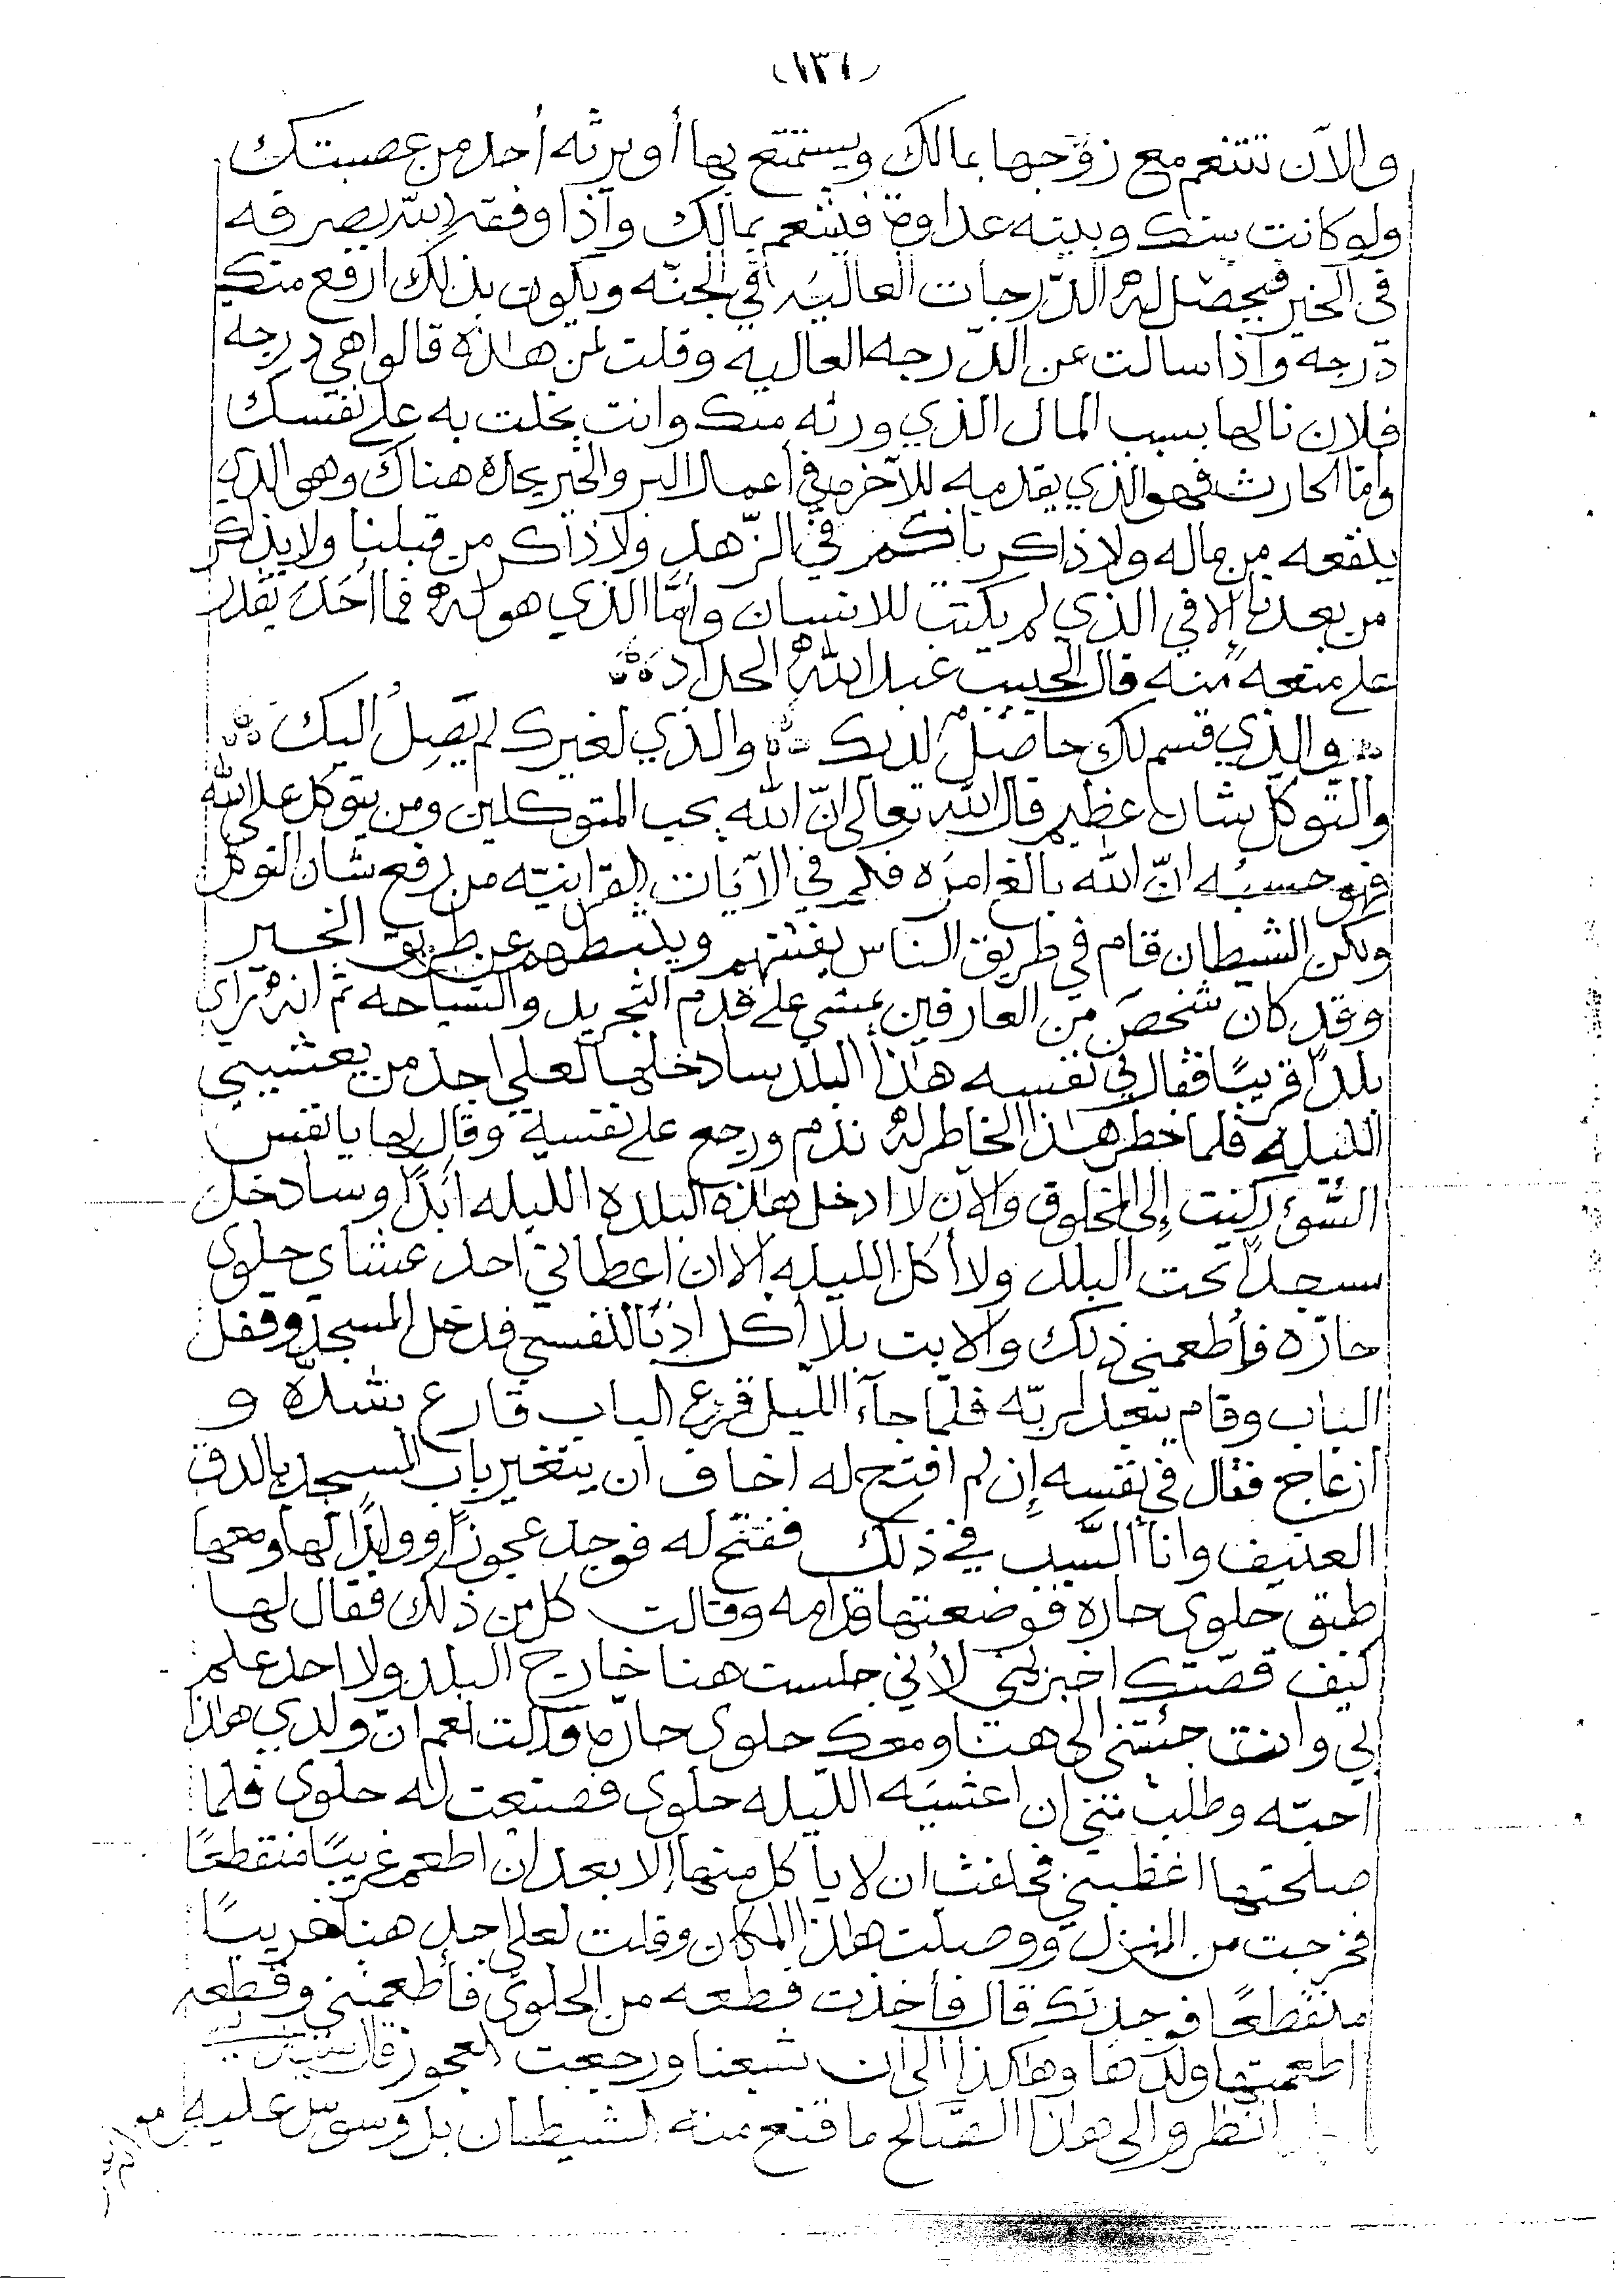 (١٣٦)
والآن تتنعم مع زوجها بمالك ويستمتع بها أو يرثه أحد من عصبتك
ولو كانت بينك وبينه عداوة فيتنعم بمالك وإذا وفقه الله يصرفه
في الخير فيحصل له الدّرجات العاليه في الجنّه ويكون بذلك ارفع منك
درجه وإذا سالت عن الدّرجه العاليه وقلت لمن هاذه قالوا هي درجه
فلان نالها بسبب المال الذي ورثه منك وانت بخلت به على نفسك
وأمّا الحارث فهو الذي يقدمه للآخره في أعمال البر والخير يجده هناك وهو الذي
ينفعه من ماله ولا ذاكر باكم في الزّهد ولا ذاكر من قبلنا ولا يذكر
من بعدنا إلا في الذي لم يكتب للانسان وأمّا الذي هو له فما أحد يقدر
على منعه منه قال الحبيب عبد الله الحداد
والذي قسم لك حاصلٌ لديك والذي لغيرك لم يَصِلُ اليك
والتوكل بشان عظيم قال الله تعالى انّ الله يحب المتوكلين ومن يتوكل على الله
فهو حسبُه انّ الله بالغ امره فكم في الآيات القرآنيّه من رفع شان التوكل
ولكن الشيطان قام في طريق الناس يفتنهم ويثبطهم عن طريق الخير
وقد كان شخص من العارفين يمشي على قدم التجريد والسياحه ثم انه تراي
بلدًا قريبًا فقال في نفسه هاذا البلد سادخلها لعلي اجد من يعشيني
الليله فلما خطر هاذا الخاطر له ندم ورجع على نفسه وقال لها يا نفس
السّوء ركنت إلى المخلوق والآن لا ادخل هاذه البلده الليله أبدًا وسادخل
مسجدًا تحت البلد ولا أكل الليله إلا ان اعطاني احد عشاي حلوى
حارّه فأطعمني ذلك والا بت بلا أكل ادبًا لنفسي فدخل المسجد وقفل
الباب وقام يتعبد لربّه فلما جآء الليل قرع الباب قارع بشدّه و
ازعاج فقال في نفسه إن لم افتح له اخاف ان يتغير باب المسجد بالدق
العنيف وانا السَّبب في ذلك ففتح له فوجد عجوزًا وولدًا لها ومعها
طبق حلوى حاره فوضعتها قدامه وقالت كل من ذلك فقال لها
كيف قصّتك اخبريني لأني جلست هنا خارج البلد ولا احد علم
بي وانت جئتني الى هنا ومعك حلوى حارّه قالت نعم انّ ولدي هاذا
احبّه وطلب منّي ان اعشيه الليله حلوى فصنعت له حلوى فلما
صلحتها اغظبني فحلفت ان لا يأكل منها إلا بعد ان اطعم غريبًا منقطعًا
فخرجت من المنزل ووصلت هاذا المكان وقلت لعلي اجد هنا غريبًا
منقطعًا فوجدتك قال فأخذت قطعه من الحلوى فأطعمتني وقطعه
اطعمتها ولدها وهاكذا الى ان شبعنا ورجعت العجوز قال
انظروا الى هاذا الصّالح ما قنع منه الشيطان بل وسوس عليه